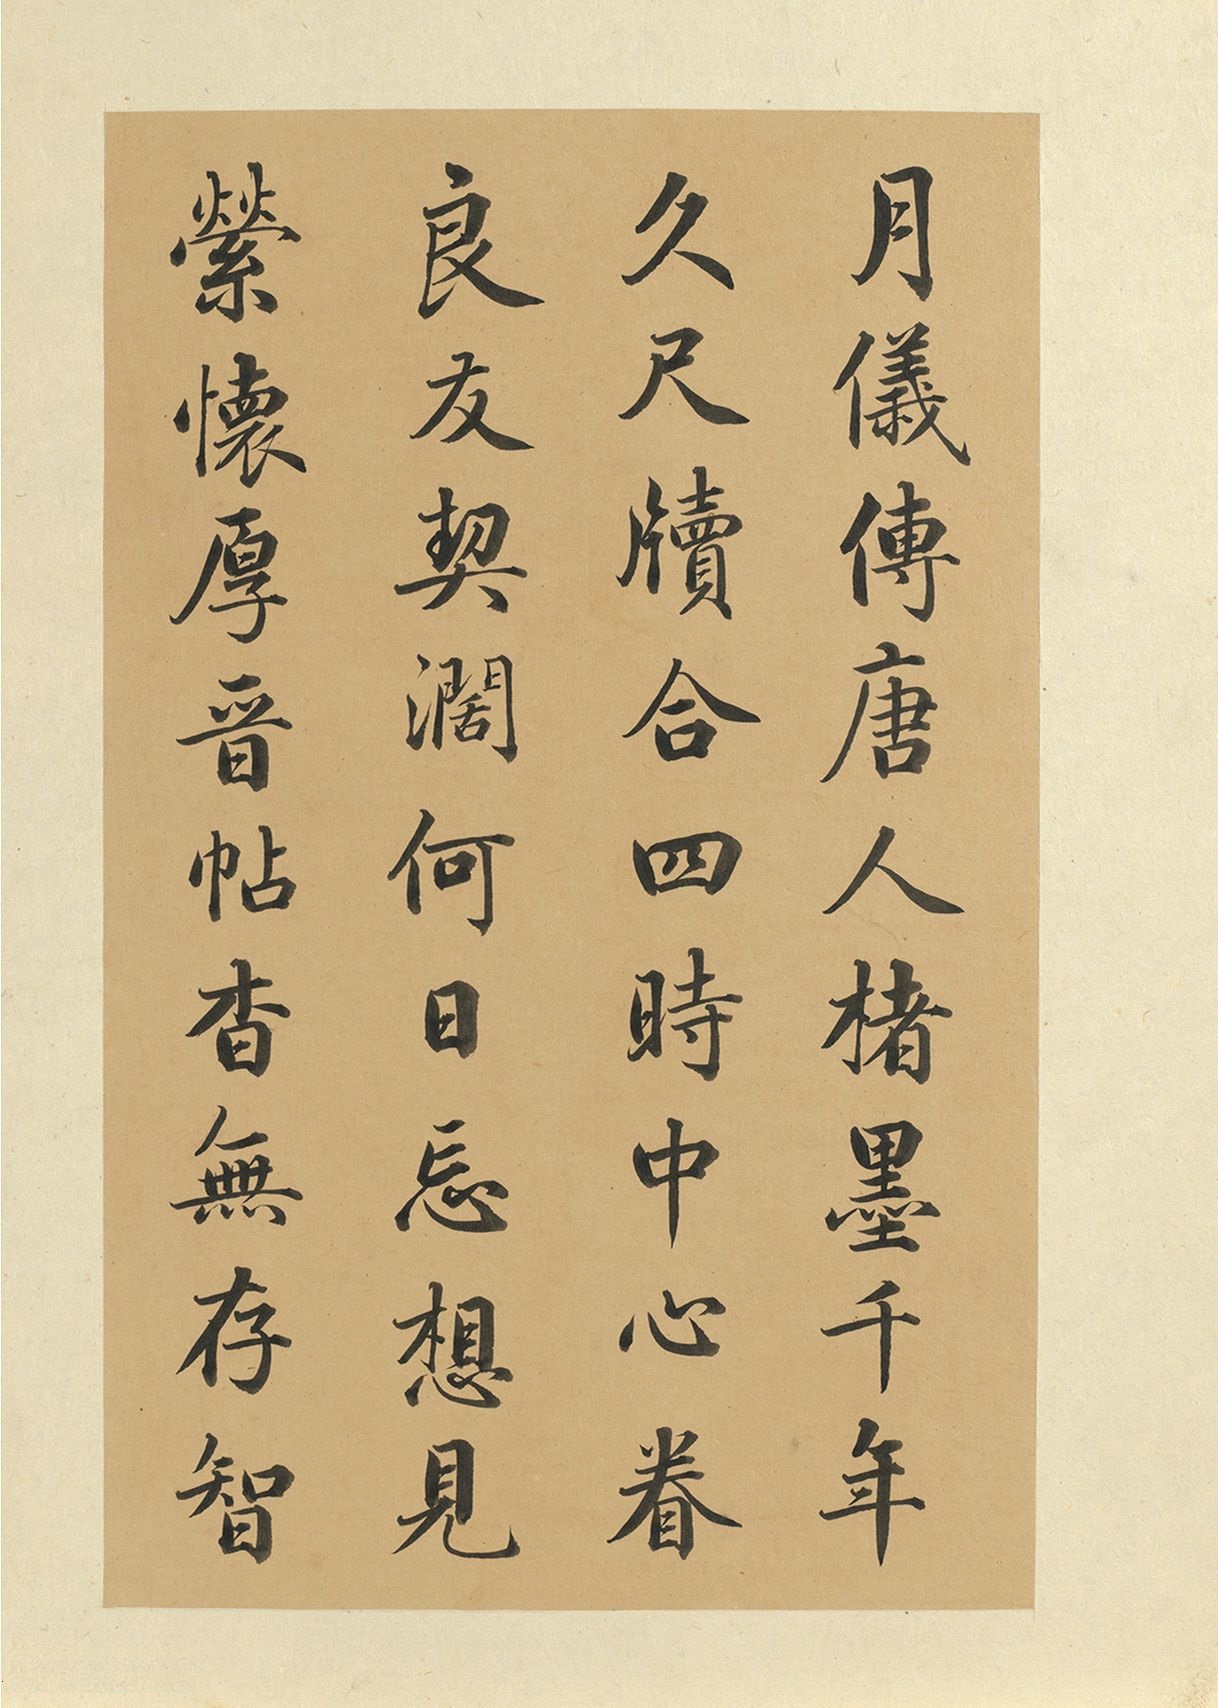 月儀傳唐人楮墨千年
久尺牘合四時中心眷
良友契濶何日忘想見
縈懷厚晉帖杳無存智